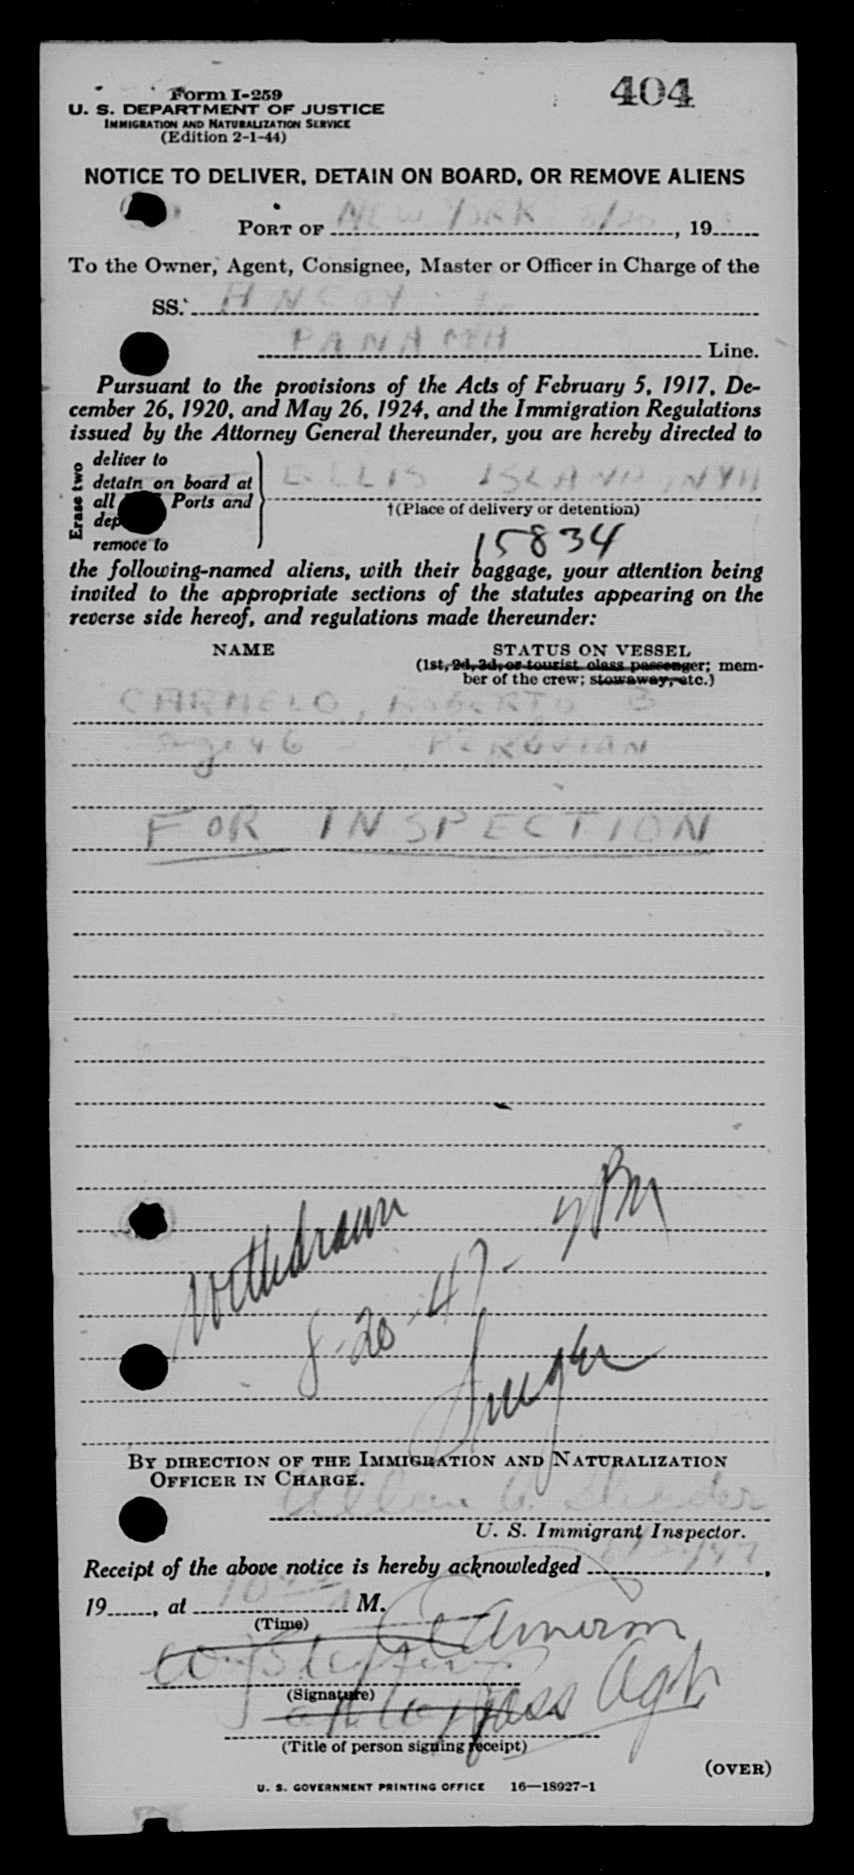 Form I-259
404
U. S. DEPARTMENT OF JUSTICE
IMMIGRATION AND NATURALIZATION SERVICE
(Edition 2-1-44)
NOTICE TO DELIVER, DETAIN ON BOARD, OR REMOVE ALIENS
PORT OF NEW YORK, 19
To the Owner, Agent, Consignee, Master or Officer in Charge of the
SS. ANCON
PANAMA Line.
Pursuant to the provisions of the Acts of February 5, 1917, De-
cember 26, 1920, and May 26, 1924, and the Immigration Regulations
issued by the Attorney General thereunder, you are hereby directed to
deliver to
detain on board at ELLIS ISLAND, NYH
Erase two
all Ports and
†(Place of delivery or detention)
remove to
15834
the following-named aliens, with their baggage, your attention being
invited to the appropriate sections of the statutes appearing on the
reverse side hereof, and regulations made thereunder:
NAME STATUS ON VESSEL
(1st, 2d, 3d, or tourist class passenger; mem-
ber of the crew; stowaway, etc.)
CARMELO, ROBERTO B
age 46 - PERUVIAN
FOR INSPECTION
Withdrawn
8-20-47-
BY DIRECTION OF THE IMMIGRATION AND NATURALIZATION
OFFICER IN CHARGE.
U. S. Immigrant Inspector.
Receipt of the above notice is hereby acknowledged ,
19 , at M.
(Time)
(Signature)
Pass Agt
(Title of person signing receipt)
(OVER)
U. S. GOVERNMENT PRINTING OFFICE 16—18927-1